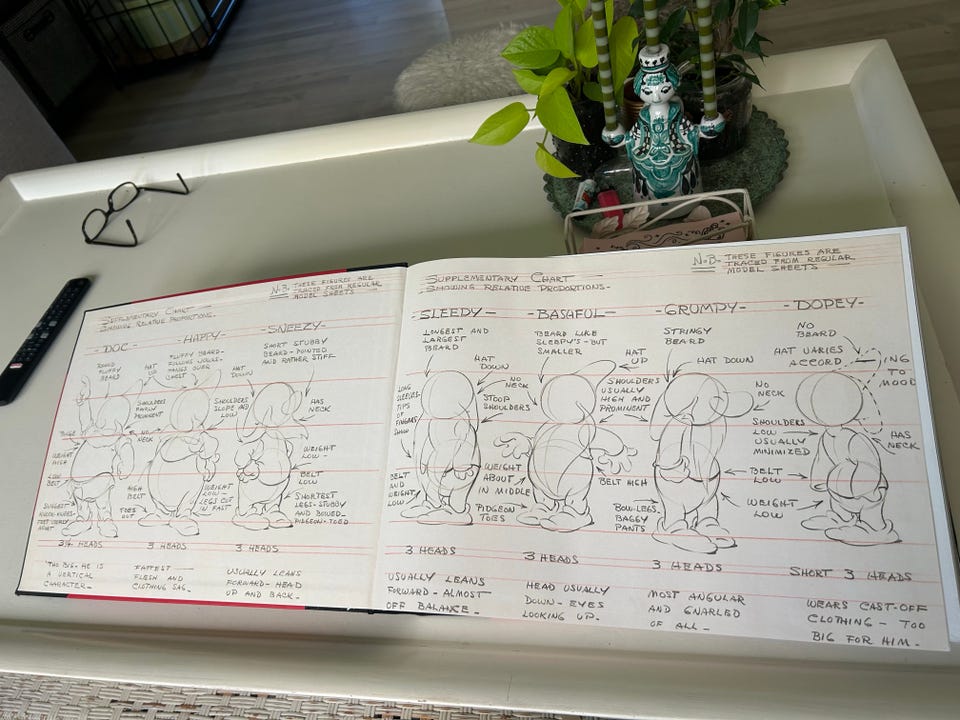 SUPPLEMENTARY CHART
SHOWING RELATIVE PROPORTIONS.
N.B. THESE FIGURES ARE
TRACED FROM REGULAR
MODEL SHEETS
-DOC-
-HAPPY-
-SNEEZY-
ROUND
FLUFFY
BEARD
HAT
UP
FLUFFY BEARD-
HANGS OVER
CHEST
HAT
DOWN
SHORT STUBBY
BEARD-POINTED
AND RATHER STIFF
SHOULDERS
FAIRLY
PROMINENT
NO
NECK
SHOULDERS
SLOPE AND
LOW
HAS
NECK
WEIGHT
HIGH
LOW
BELT
HIGH
BELT
TOES OUT
WEIGHT
LOW-
LEGS CUT
IN FAST
WEIGHT
LOW-
BELT
LOW
SHORTEST
LEGS-STUBBY
AND BOWED-
PIDGEON-TOED
3 HEADS
3 HEADS
TOO BIG. HE IS
A VERTICAL
CHARACTER-
FATTEST-
FLESH AND
CLOTHING SAG.
USUALLY LEANS
FORWARD-HEAD
UP AND BACK-
SUPPLEMENTARY CHART
SHOWING RELATIVE PROPORTIONS-
N.B- THESE FIGURES ARE
TRACED FROM REGULAR
MODEL SHEETS
-SLEEDY-
-BASHFUL-
-GRUMPY-
-DOPEY-
LONGEST AND
LARGEST
BEARD
BEARD LIKE
SLEEPY'S-BUT
SMALLER
STRINGY
BEARD
NO
BEARD
HAT
DOWN
NO
NECK
HAT
UP
HAT DOWN
HAT VARIES
ACCORD
ING
TO
MOOD
LONG
SLEEVES-
TIPS
OF
FINGERS
SHOW
STOOP
SHOULDERS
SHOULDERS
USUALLY
HIGH AND
PROMINENT
NO
NECK
SHOULDERS
LOW
USUALLY
MINIMIZED
HAS
NECK
BELT
AND
WEIGHT
LOW
WEIGHT
ABOUT
IN MIDDLE
PIDGEON
TOES
BELT HIGH
BOW-LEGS-
BAGGY
PANTS
BELT
LOW
WEIGHT
LOW
3 HEADS
3 HEADS
3 HEADS
SHORT 3 HEADS
USUALLY LEANS
FORWARD-ALMOST
OFF BALANCE-
HEAD USUALLY
DOWN-EYES
LOOKING UP.
MOST ANGULAR
AND GNARLED
OF ALL-
WEARS CAST-OFF
CLOTHING-TOO
BIG FOR HIM-